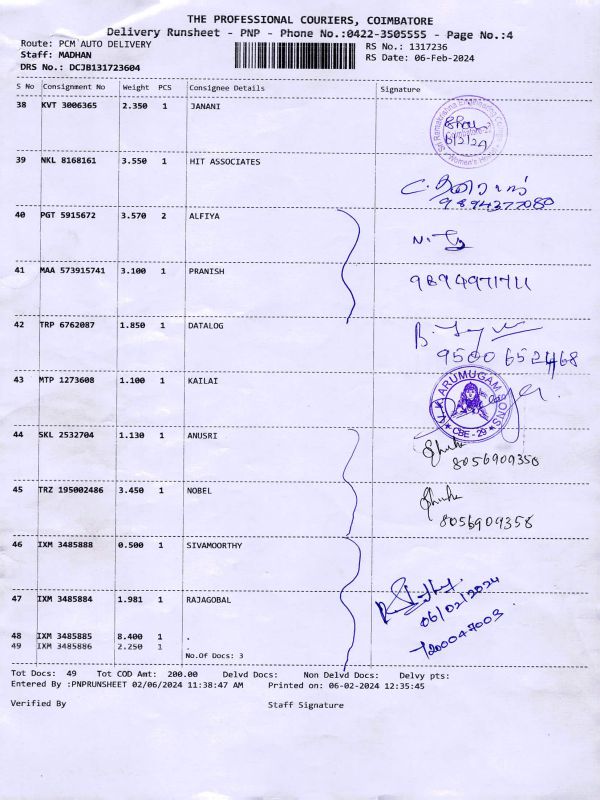 THE PROFESSIONAL COURIERS, COIMBATORE
Delivery Runsheet - PNP - Phone No.:0422-3505555 - Page No.:4
Route: PCM AUTO DELIVERY RS No.: 1317236
Staff: MADHAN RS Date: 06-Feb-2024
DRS No.: DCJB131723604
S No Consignment No Weight PCS Consignee Details Signature
38 KVT 3006365 2.350 1 JANANI
Sri Ramakrishna Engineering College
Women's Hostel
6/2/24
39 NKL 8168161 3.550 1 HIT ASSOCIATES
9894377080
40 PGT 5915672 3.570 2 ALFIYA
41 MAA 573915741 3.100 1 PRANISH
9894971711
42 TRP 6762087 1.850 1 DATALOG
43 MTP 1273608 1.100 1 KAILAI
ARUMUGAM SONS
CBE - 29
44 SKL 2532704 1.130 1 ANUSRI
8056909358
45 TRZ 195002486 3.450 1 NOBEL
8056909358
46 IXM 3485888 0.500 1 SIVAMOORTHY
47 IXM 3485884 1.981 1 RAJAGOBAL
06/02/2024
7200047003
48 IXM 3485885 8.400 1 .
49 IXM 3485886 2.250 1 .
No.Of Docs: 3
Tot Docs: 49 Tot COD Amt: 200.00 Delvd Docs: Non Delvd Docs: Delvy pts:
Entered By :PNPRUNSHEET 02/06/2024 11:38:47 AM Printed on: 06-02-2024 12:35:45
Verified By Staff Signature